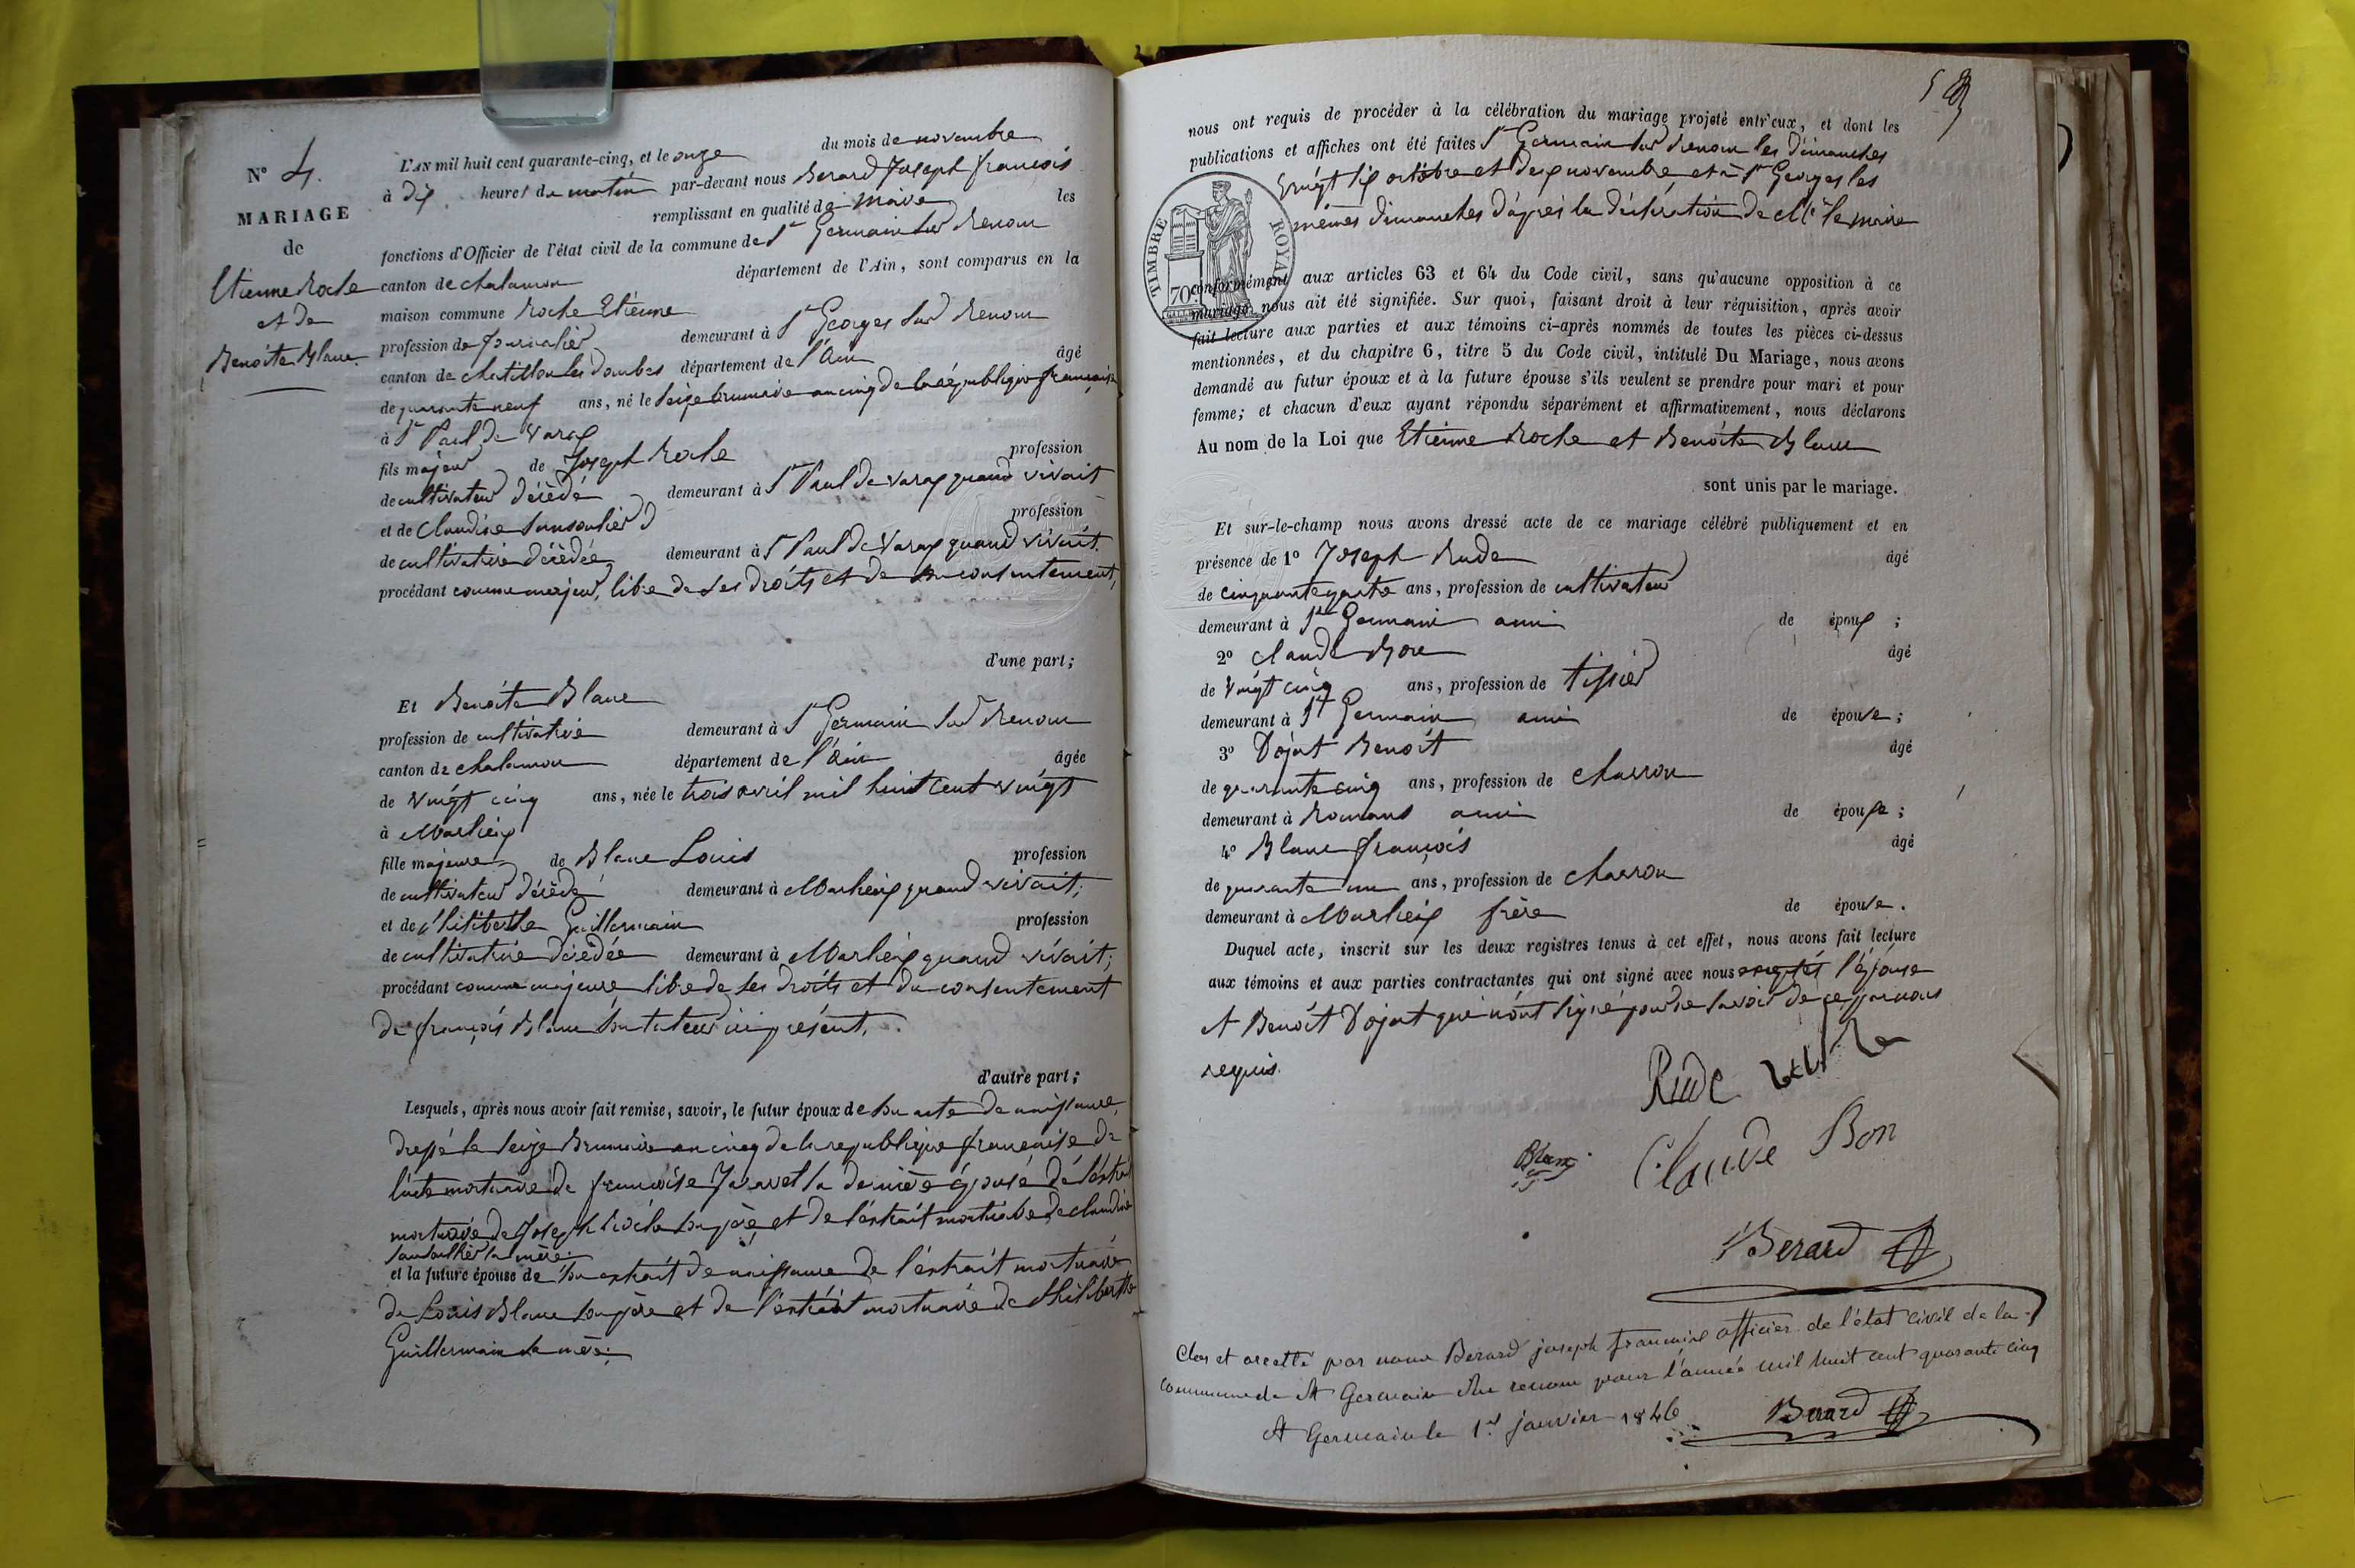 N° 4.
MARIAGE
de
Etienne Roche
et de
Benoite Blanc
L'AN mil huit cent quarante-cinq, et le onze du mois de novembre
à dix heures du matin par-devant nous Berard Joseph francois
remplissant en qualité de maire les
fonctions d'Officier de l'état civil de la commune de St Germain sur Renom
canton de chalamon département de l'Ain, sont comparus en la
maison commune Roche Etienne
profession de Journalier demeurant à St Georges sur Renom
canton de chatillon les dombes département de l'Ain âgé
de quarante neuf ans, né le seize brumaire an cinq de la république française
à St Paul de Varax
fils majeur de Joseph Roche profession
de cultivateur décèdé demeurant à St Paul de Varax quand vivait
et de Claudine profession
de cultivatrice décèdée demeurant à St Paul de Varax quand vivait.
procédant comme majeur, libre de ses droits et de son consentement,
d'une part;
Et Benoite Blanc
profession de cultivatrice demeurant à St Germain sur Renom
canton de chalamon département de l'Ain âgée
de vingt cinq ans, née le trois avril mil huit cent vingt
à Marlieux
fille majeure de Blanc Louis profession
de cultivateur décèdé demeurant à Marlieux quand vivait;
et de Philiberthe Guillermain profession
de cultivatrice décèdée demeurant à Marlieux quand vivait;
procédant comme majeure libre de ses droits et du consentement
de françois Blanc son tuteur ici présent.
d'autre part;
Lesquels, après nous avoir fait remise, savoir, le futur époux de son acte de naissance,
dressé le seize Brumaire an cinq de la republique francaise de
l'acte mortuaire de francoise sa derniere épouse de l'extrait
mortuaire de Joseph Roche son père et de l'extrait mortuaire de claudine
sa mère.
et la future épouse de son extrait de naissance de l'extrait mortuaire
de Louis Blanc son père et de l'extrait mortuaire de Philiberthe
Guillermain sa mère.
nous ont requis de procéder à la célébration du mariage projeté entr'eux, et dont les
publications et affiches ont été faites St Germain sur Renom les dimanches
vingt six octobre et deux novembre et à St Georges les
mêmes dimanches d'après la déclaration de Mr le maire
TIMBRE ROYAL
70c
conformément aux articles 63 et 64 du Code civil, sans qu'aucune opposition à ce
mariage nous ait été signifiée. Sur quoi, faisant droit à leur réquisition, après avoir
fait lecture aux parties et aux témoins ci-après nommés de toutes les pièces ci-dessus
mentionnées, et du chapitre 6, titre 5 du Code civil, intitulé Du Mariage, nous avons
demandé au futur époux et à la future épouse s'ils veulent se prendre pour mari et pour
femme; et chacun d'eux ayant répondu séparément et affirmativement, nous déclarons
Au nom de la Loi que Etienne Roche et Benoite Blanc
sont unis par le mariage.
Et sur-le-champ nous avons dressé acte de ce mariage célébré publiquement et en
présence de 1° Joseph Rude âgé
de cinquante quatre ans, profession de cultivateur
demeurant à St Germain ami de époux ;
2° Claude Bon âgé
de vingt cinq ans, profession de tissier
demeurant à St Germain ami de épouse ;
3° Dojat Benoît âgé
de quarante cinq ans, profession de charron
demeurant à Romans ami de épouse ;
4° Blanc françois âgé
de quarante un ans, profession de charron
demeurant à Marlieux frère de épouse .
Duquel acte, inscrit sur les deux registres tenus à cet effet, nous avons fait lecture
aux témoins et aux parties contractantes qui ont signé avec nous exceptés l'épouse
et Benoît Dojat qui n'ont signé pour ne savoir de ce par nous
requis.
Rude
Blanc
Claude Bon
Berard
Clos et arretté par nous Berard joseph francois officier de l'état civil de la
commune de St Germain sur renom pour l'année mil huit cent quarante cinq
St Germain le 1er janvier 1846
Berard